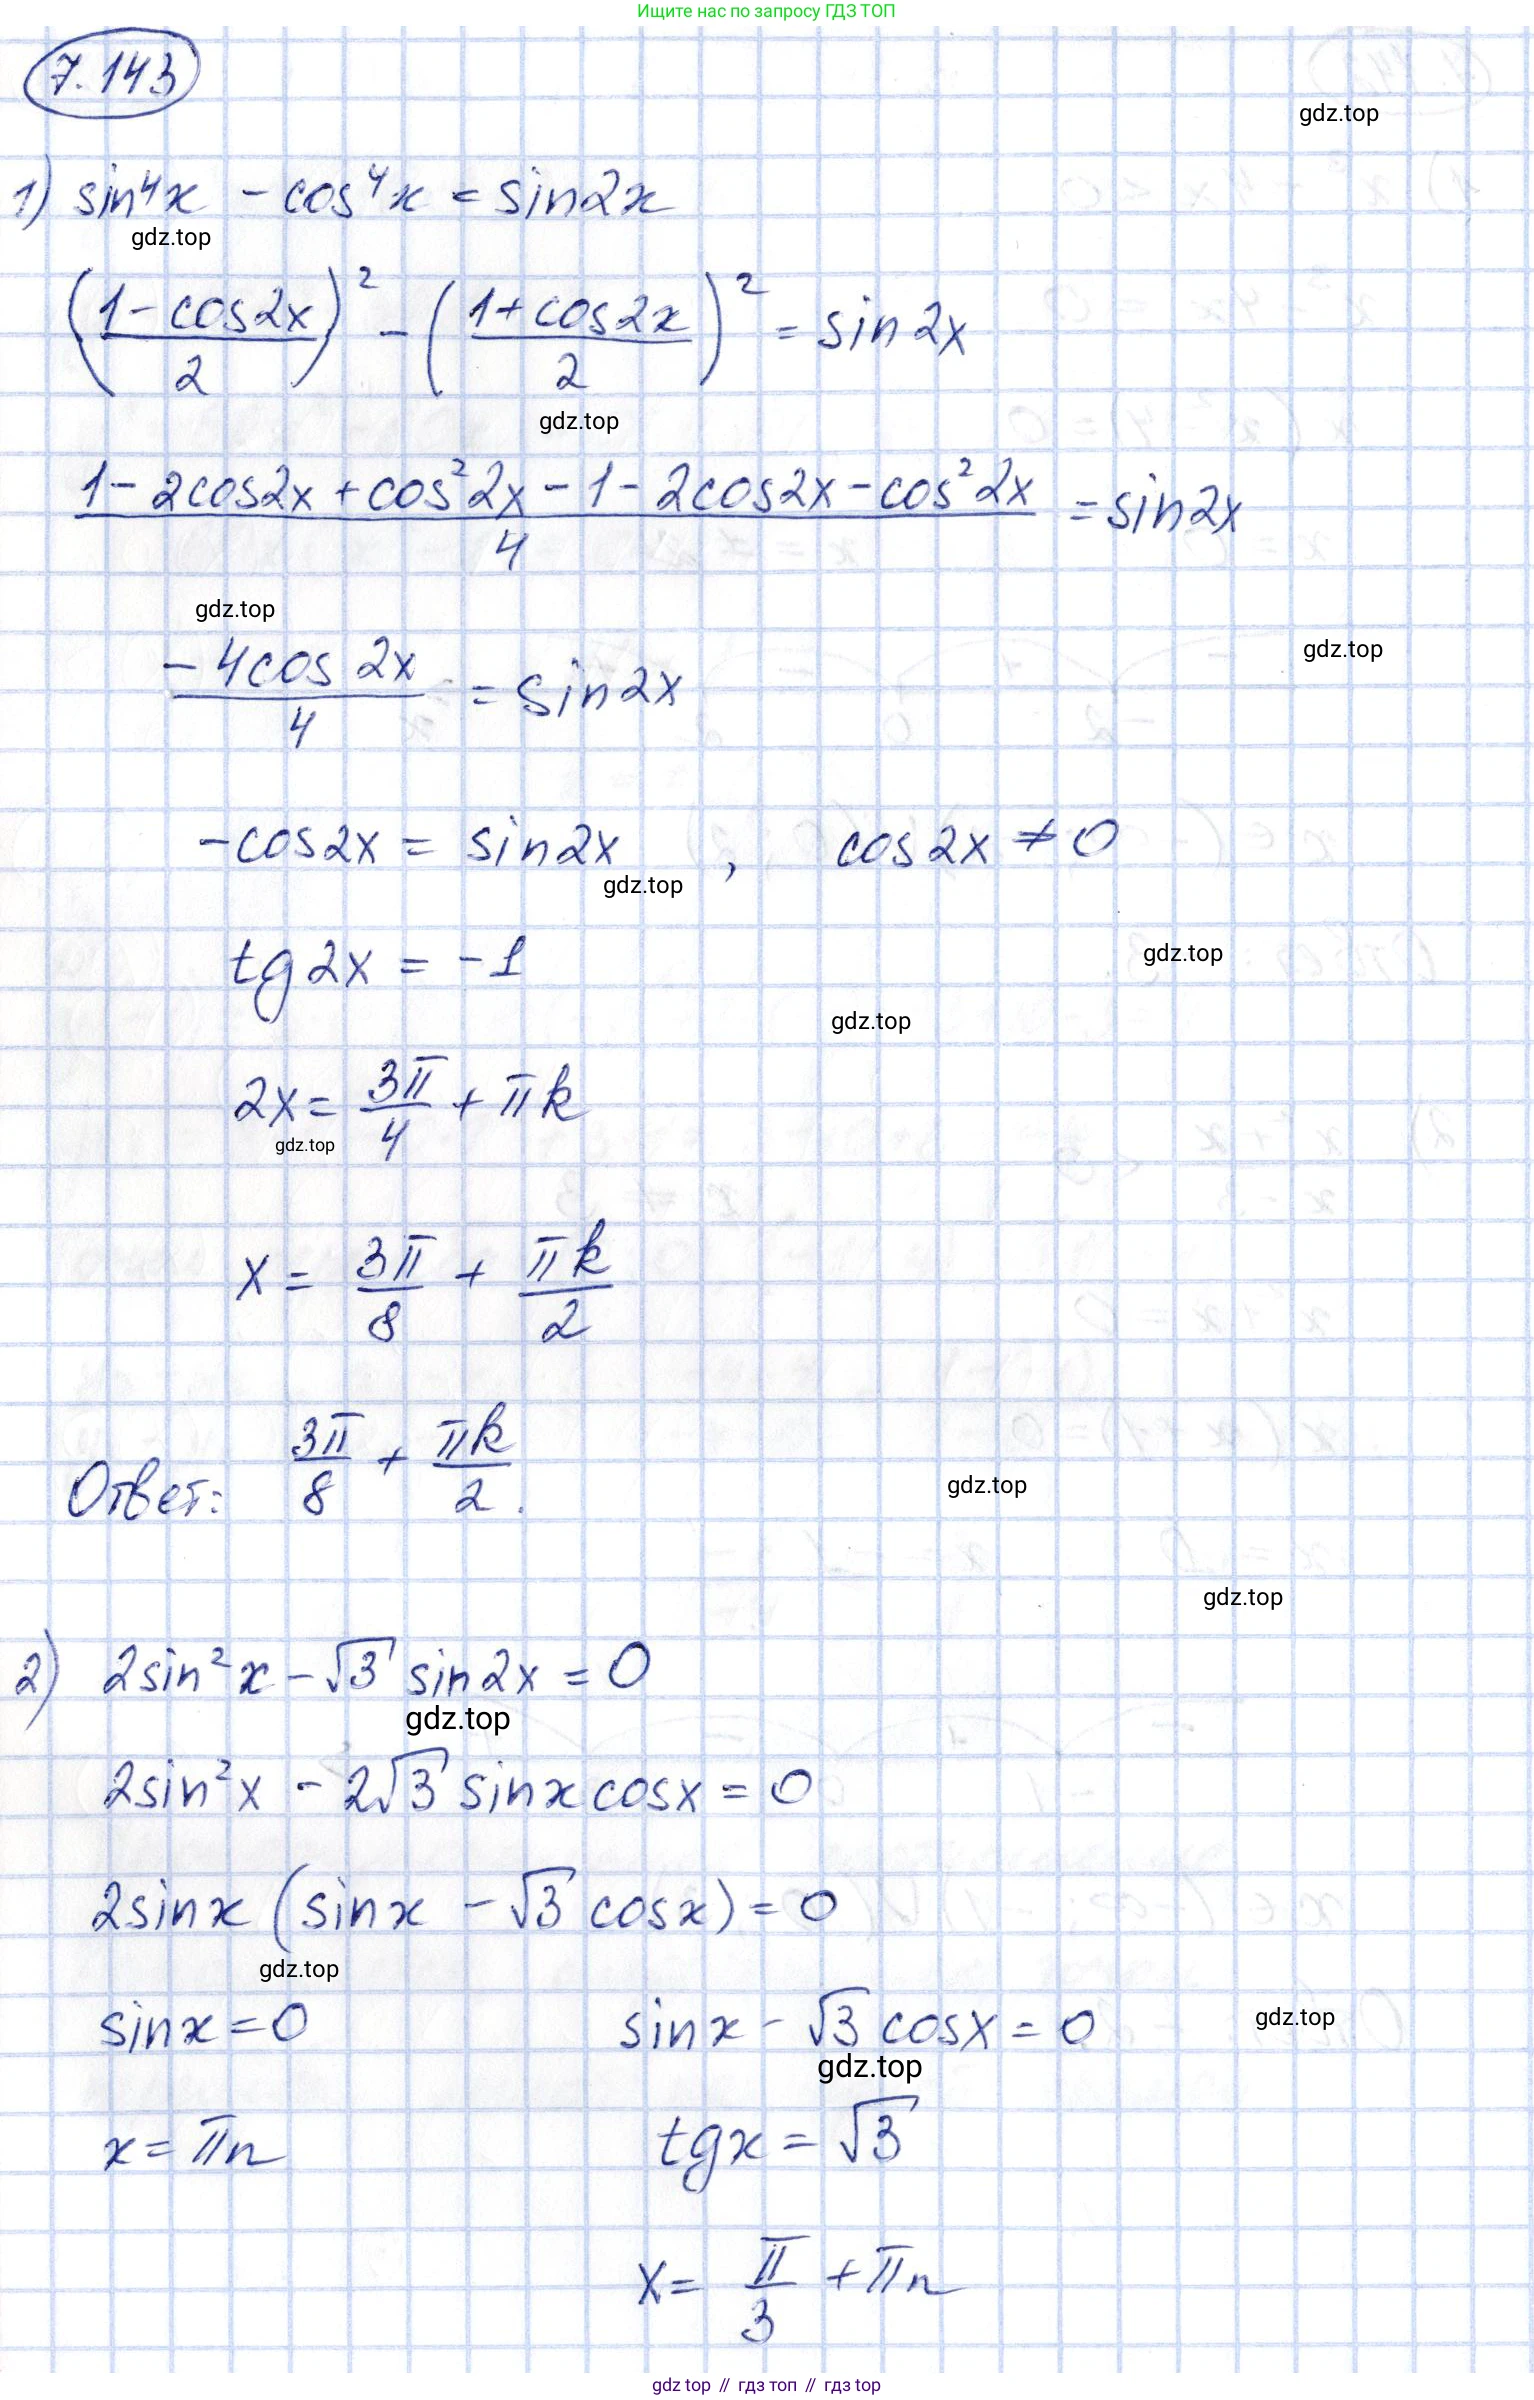 Ищите нас по запросу ГДЗ ТОП
7.143
gdz.top
1) sin⁴x - cos⁴x = sin2x
gdz.top
((1-cos2x)/2)² - ((1+cos2x)/2)² = sin2x
gdz.top
(1-2cos2x+cos²2x-1-2cos2x-cos²2x)/4 = sin2x
gdz.top
gdz.top
(-4cos2x)/4 = sin2x
-cos2x = sin2x, cos2x ≠ 0
gdz.top
tg2x = -1
gdz.top
gdz.top
2x = 3π/4 + πk
gdz.top
x = 3π/8 + πk/2
Ответ: 3π/8 + πk/2.
gdz.top
gdz.top
2) 2sin²x - √3 sin2x = 0
gdz.top
2sin²x - 2√3 sinx cosx = 0
2sinx (sinx - √3 cosx) = 0
gdz.top
sinx = 0 sinx - √3 cosx = 0
gdz.top
gdz.top
x = πn tgx = √3
x = π/3 + πn
gdz top // гдз топ // гдз top